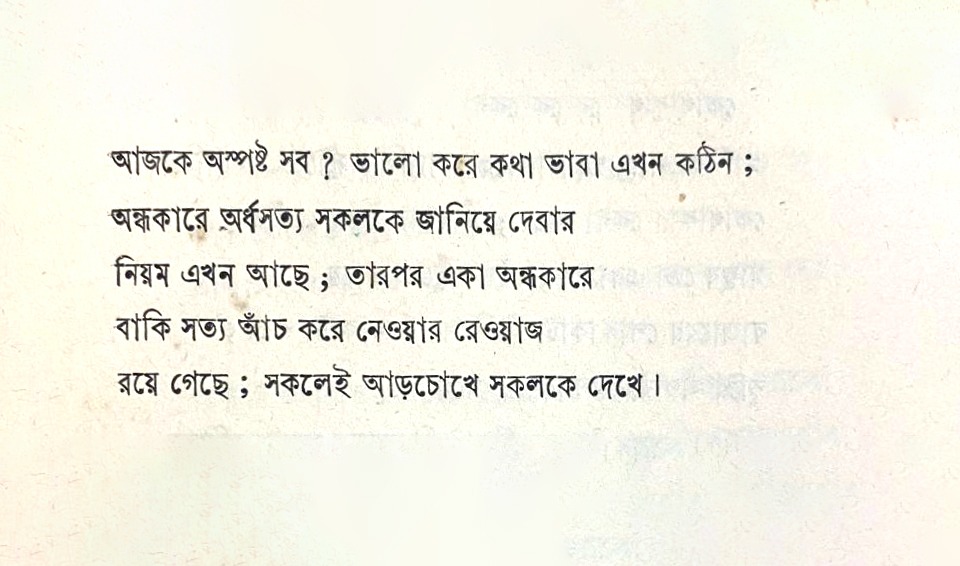 আজকে অস্পষ্ট সব ? ভালো করে কথা ভাবা এখন কঠিন ;
অন্ধকারে অর্ধসত্য সকলকে জানিয়ে দেবার
নিয়ম এখন আছে ; তারপর একা অন্ধকারে
বাকি সত্য আঁচ করে নেওয়ার রেওয়াজ
রয়ে গেছে ; সকলেই আড়চোখে সকলকে দেখে ।